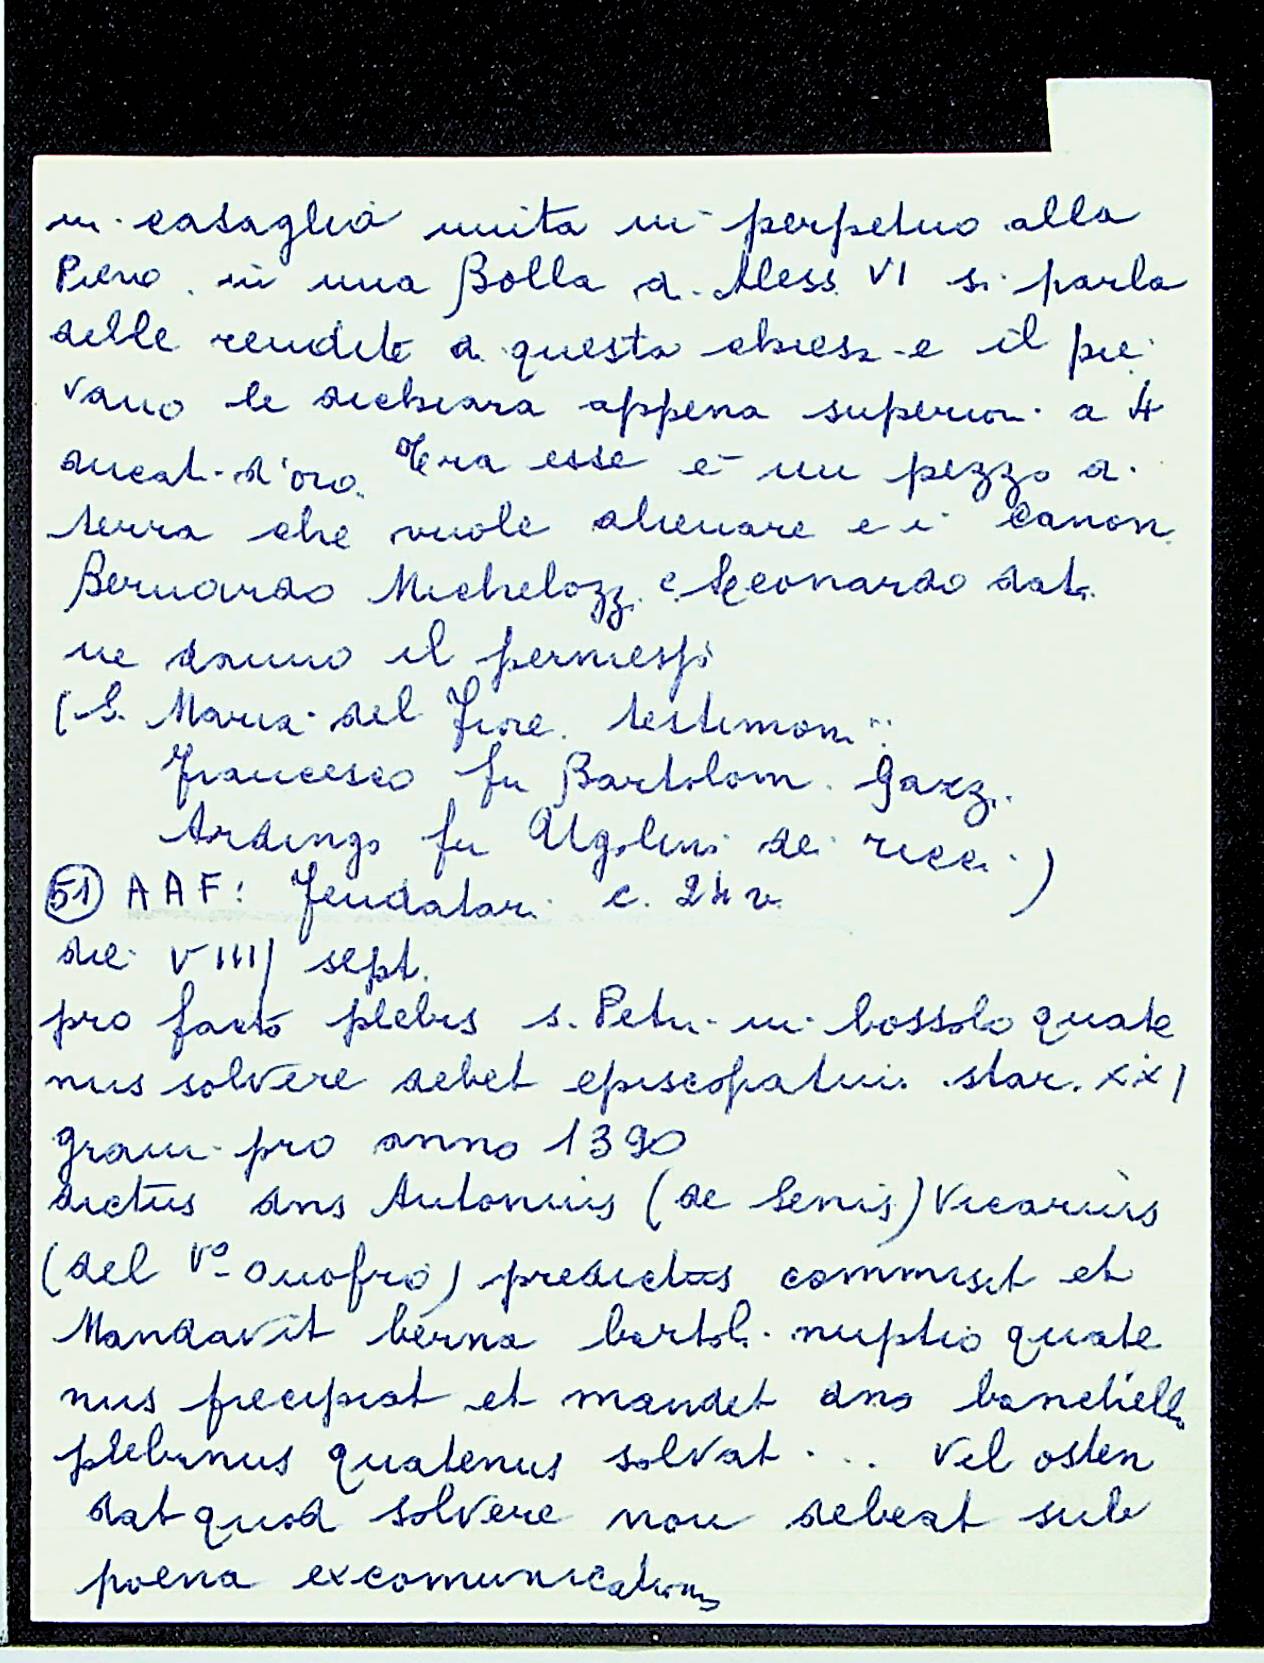 in casaglia unita in perpetuo alla
Pieve. in una Bolla di Aless. VI si parla
delle rendite di questa chiesa e il pie
vano le dichiara appena superiori a 4
ducati d'oro. Tra esse è un pezzo di
terra che vuole alienare e i canon.
Bernardo Michelozzi e Leonardo dati
ne danno il permesso
(S. Maria del Fiore. testimoni:
Francesco fu Bartolom. Garzi.
Ardingo fu Ugolini dei ricci.)
51 AAF: Feudatari c. 24 v
die VIIII sept.
pro facto plebis s. Petri in bossolo quate
nus solvere debet episcopatui star. XXI
grani pro anno 1390
dictus dns Antonius (de Senis) Vicarius
(del Vo Onofrio) predictus commisit et
Mandavit berna bartol. nuptio quate
nus precipiat et mandet dno banchiell.
plebanus quatenus solvat ... vel osten
dat quod solvere non debeat sub
poena excomunicationis